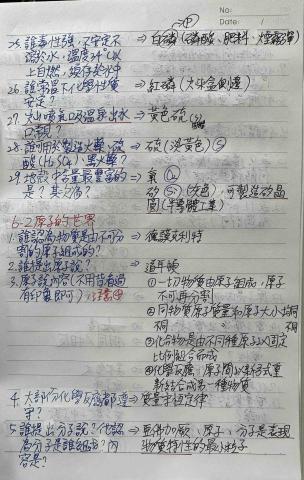 No:
Date:
→ P
25. 誰毒性強、不安定不 ⇒ 白磷(磷酸、肥料、煙霧彈)
溶於水，溫度 以上
自然，故存於水中
26. 誰常溫下化學性質 ⇒ 紅磷(火柴盒側邊)
安定？
27. 火山噴氣口及溫泉出水 ⇒ 黃色硫
口類？
28. 誰用於製造火藥、硫 ⇒ 硫(淡黃色) S
酸(H₂SO₄)、黑火藥？
29. 地殼中含量最豐富的 ⇒ 氧
是？其次為？ 矽(Si)(灰色)，可製造矽晶
圓(半導體工業)
6-2 原子的世界
1. 誰認為物質是由不可分 ⇒ 德謨克利特
割的原子組成的？
2. 誰提出原子說？ ⇒ 道耳頓
3. 原子說內容(不用背看過 ⇒ ①一切物質由原子組成，原子
有印象即可) 不可再分割
②同物質原子質量和原子大小均同
③化合物是由不同種原子以固定
比例組合而成
④化學反應，原子間以新形式重
新結合成另一種物質
4. 大部分化學反應都遵 ⇒ 質量守恆定律
守？
5. 誰提出分子說？他認 ⇒ 亞佛加厥，原子、分子是表現
為分子是誰組成？內 物質特性的最小粒子
容是？